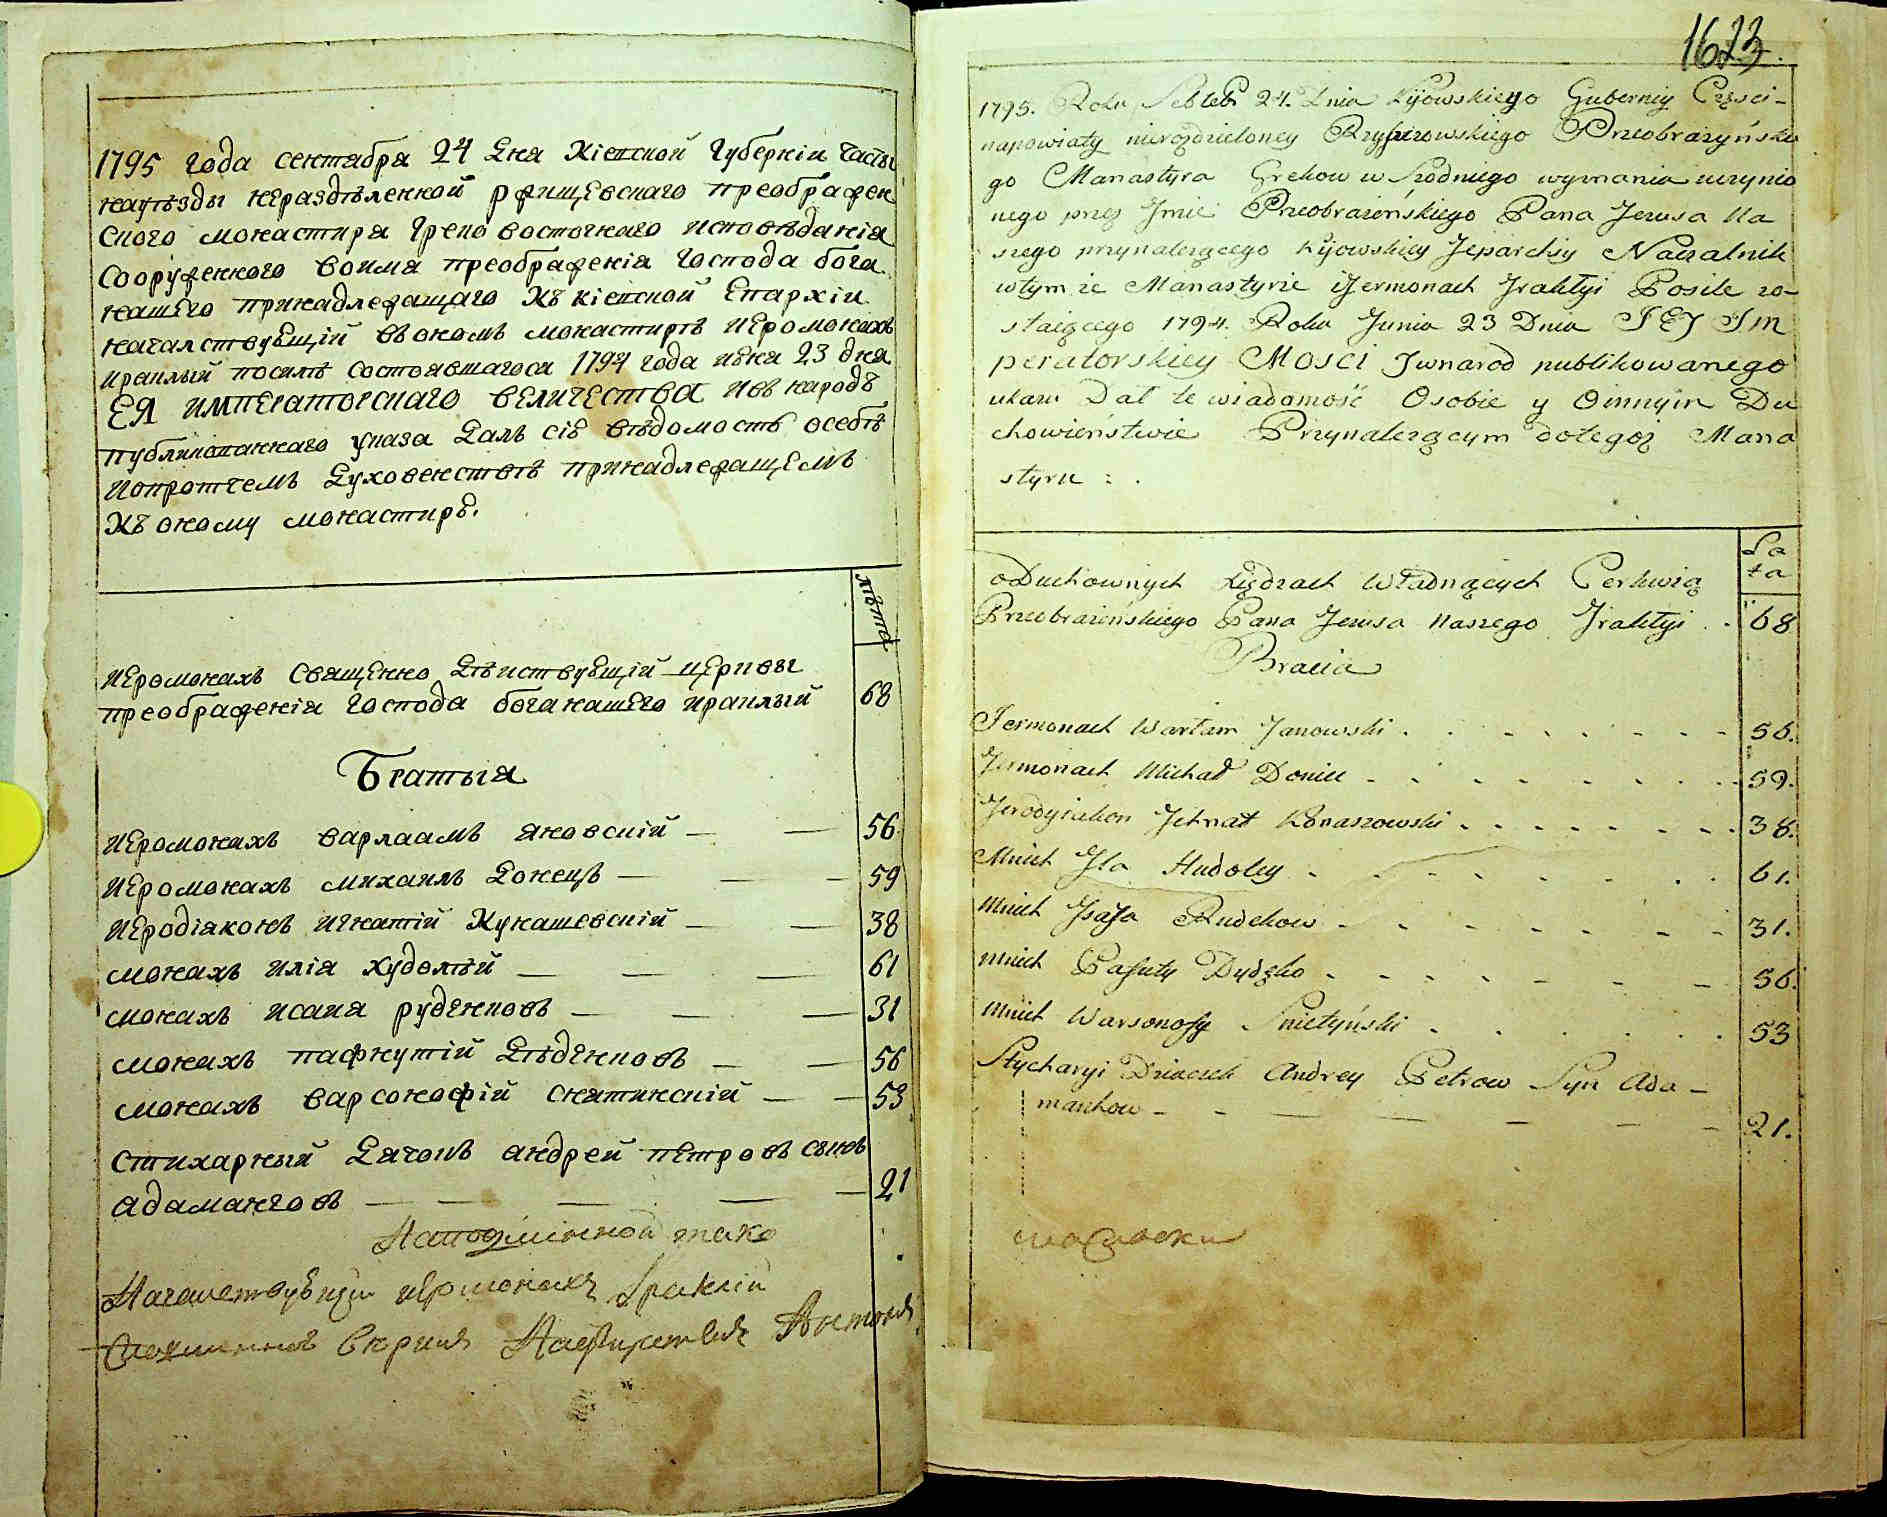 1795 года сентабра 24 дня Кіевской Губерніи Части
науѣзды нераздѣленной ржищевскаго преображен
ского монастира Греко восточнаго исповѣданія
сооруженного воимя преображенія Господа бога
нашего принадлежащаго Къ кіевской Епархіи
началствующій въ ономъ монастирѣ иеромонахъ
ираклый посилѣ состоявшагося 1794 года июня 23 дня
ЕЯ ИМПЕРАТОРСКАГО ВЕЛИЧЕСТВА изъ народъ
публикованнаго указа Далъ сію вѣдомость осебѣ
и опротчемъ Духовенствѣ принадлежащемъ
Къ оному монастирю.
лѣта
иеромонахъ священно дѣиствующій церквы
преображенія господа бога нашего ираклый 68
Братыя
иеромонахъ варлаамъ яновскій 56
иеромонахъ михаилъ Донецъ 59
иеродіаконъ игнатій Кунашевскій 38
монахъ илія худолѣй 61
монахъ исаия руденковъ 31
монахъ пафнутій Дѣденковъ 56
монахъ варсонофій снятинскій 53
стихарный Дячокъ андрей петровъ сынъ
адаманговъ 21
На подлинной тако
Началствующи иеромонахъ Іраклій
1623
1795. Roku Sebteb 24. Dnia Kijowskiego Guberniy Częsci-
napowiaty nierozdzieloney Rzyszczowskiego Przeobrazyńsko
go Manastyra Grekow wschodniego wyznania uczynio
nego przez Jmie Przeobrazeńskiego Pana Jezusa Na
szego przynalezącego Kijowskiey Jeparchiy Naczalnik
wtym ze Manastyrze iJermonach Jraklyi Posile zo-
staiącego 1794. Roku Junia 23 Dnia JEJ Im
peratorskiey MOSCI Jwnarod publikowanego
ukazu Dał te wiadomość Osobie y Oinnym Du
chowieństwie Przynalezącym dotegoż Mana
styru :.
La
ta
oDuchownych Xiędzach Władnących Cerkwią
Przeobrazeńskiego Pana Jezusa Naszego Jraklyi . 68
Bracia
Jermonach Warłam Janowski 56.
Jermonach Michał Doniec 59.
Jerodyiakon Jehnat Konaszowski 38.
Mnich Jla Hudoley 61.
Mnich Jsaja Rudekow 31.
Mnich Pafnuty Dydęko 56.
Mnich Warsonofy Snietyński 53
Stycharyi Dziaczek Andrey Petrow Syn Ada-
mankow 21.